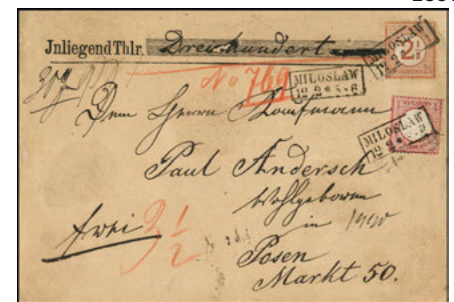 Jnliegend Thlr. Dreihundert
No 769
MILOSLAW
12 2 * 5-6
MILOSLAW
2½
MILOSLAW
Dem Herrn Kaufmann
Paul Andersch
Wohlgeboren
in
frei
3½
Posen
Markt 50.